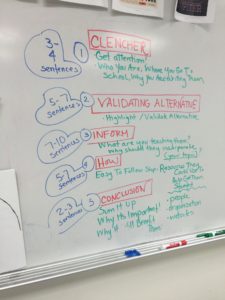 3-4 sentences
1
CLENCHER
Get attention!
Who You Are, Where You Go To
School, Why You're Addressing Them
5-7 sentences
2
VALIDATING ALTERNATIVE
• Highlight / Validate Alternative
7-10 sentences
3
INFORM
What are you teaching them?
Why should they
(your topic)
5-7 sentences
4
HOW
Easy To Follow Step
2-3 sentences
5
CONCLUSION
Sum It Up
Why It's Important!
Why It Benefit
- people
- organization
- website